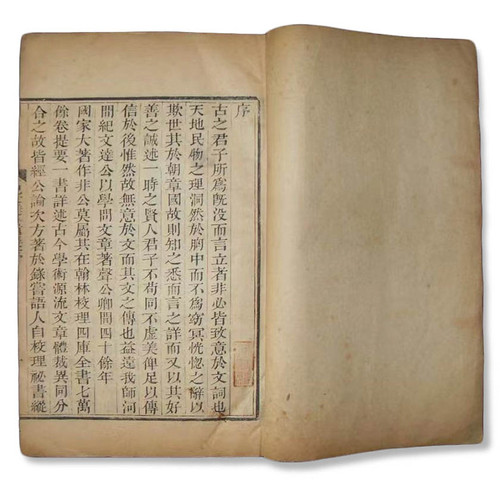 序
古之君子所爲旣沒而言立者非必皆致意於文詞也
天地民物之理洞然於胸中而不爲窈冥恍惚之辭以
欺世其於朝章國故則知之悉而言之詳而又以其好
善之誠述一時之賢人君子不苟同不虛美俾足以傳
信於後惟然故無意於文而其文之傳也益遠我師河
間紀文達公以學問文章著聲公卿間四十餘年
國家大著作非公莫屬其在翰林校理四庫全書七萬
餘卷提要一書詳述古今學術源流文章體裁異同分
合之故皆經公論次方著於錄嘗語人自校理祕書縱